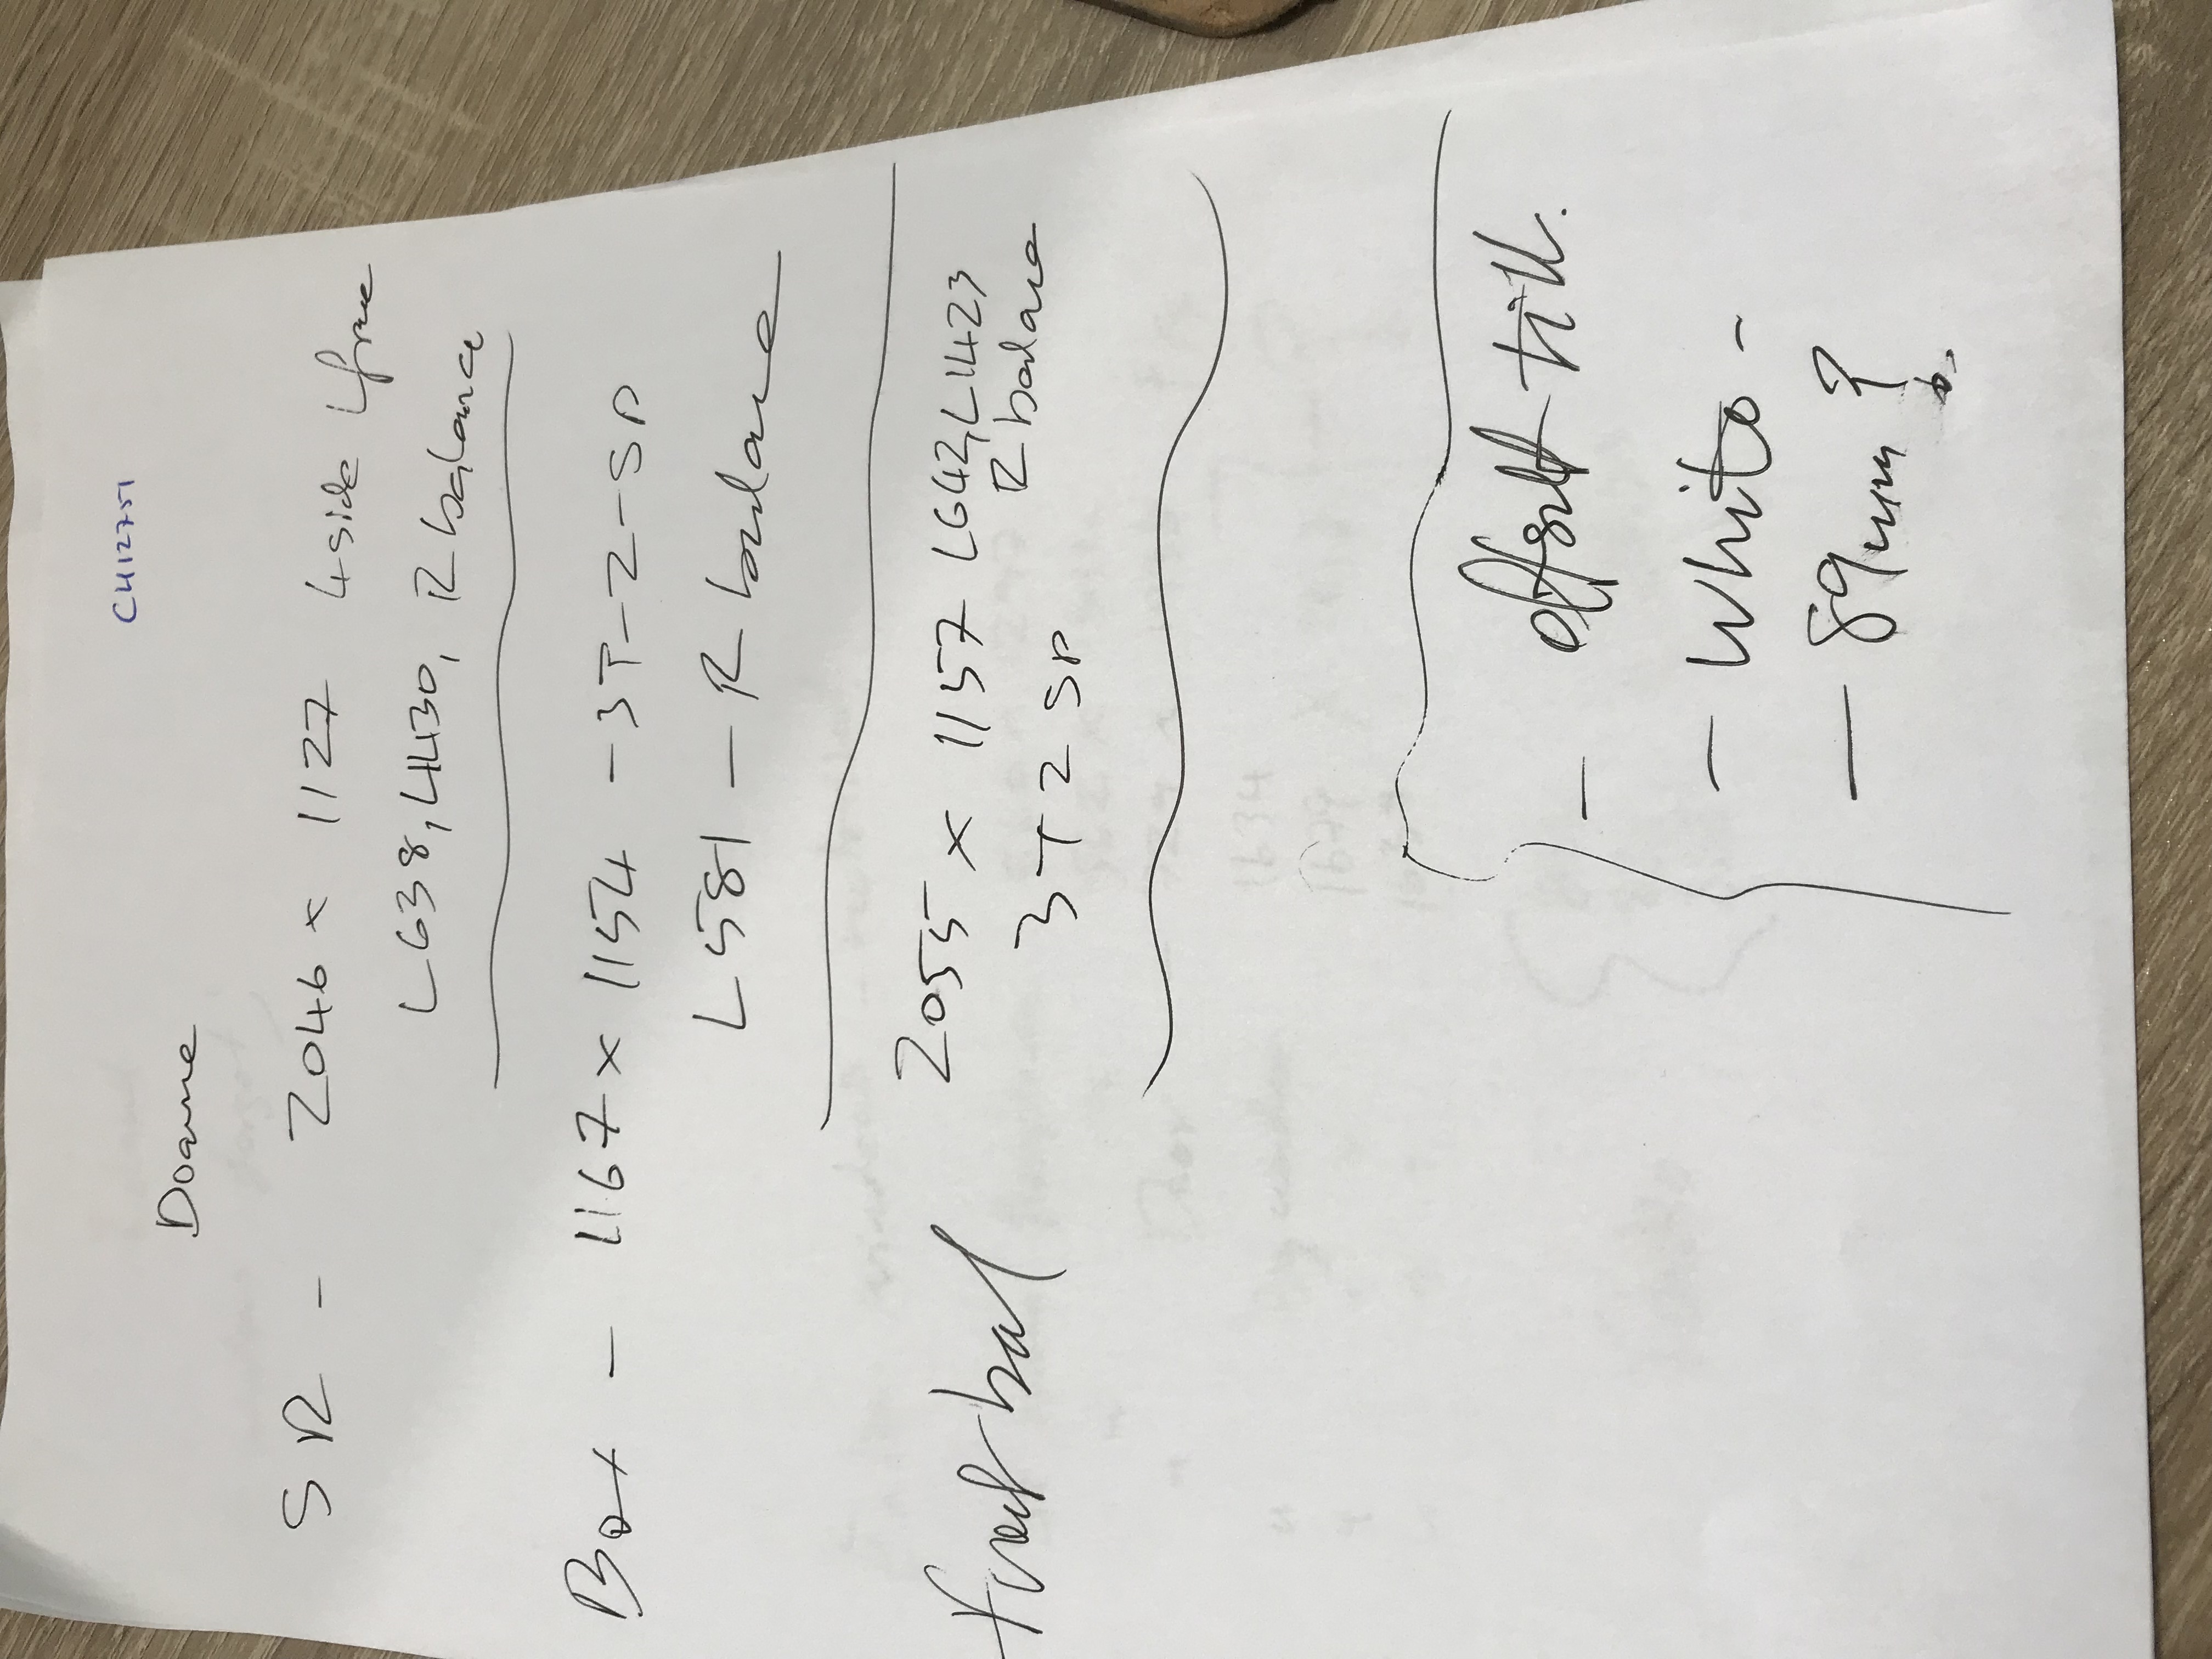 CH12751
Doame
SR - 2046 x 1127 4side L frame
L638, L1430, R balance
Box - 1167 x 1154 - 3T-Z-SP
L581 - R balance
2055 x 1157 L642, L1423
3T Z SP R balance
- offset tilt.
- White -
- 89mm ?